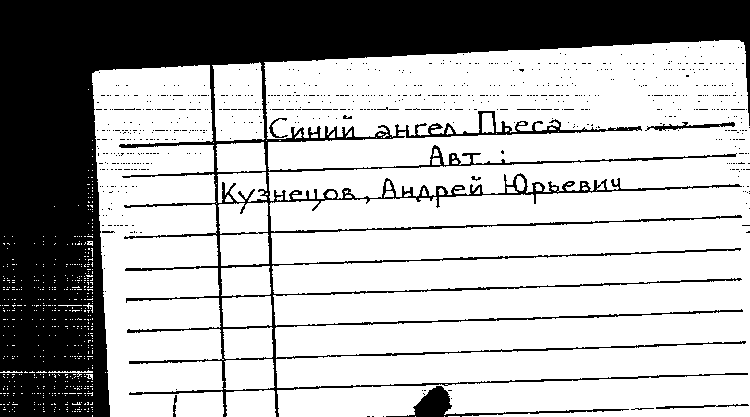 Синий ангел. Пьеса
Авт. :
Кузнецов, Андрей Юрьевич